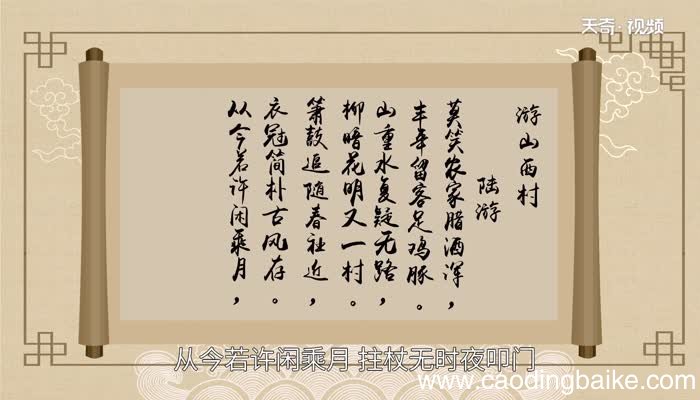 天奇·视频
游山西村
陆游
莫笑农家腊酒浑，
丰年留客足鸡豚。
山重水复疑无路，
柳暗花明又一村。
箫鼓追随春社近，
衣冠简朴古风存。
从今若许闲乘月，
从今若许闲乘月 拄杖无时夜叩门
www.caodingbaike.com